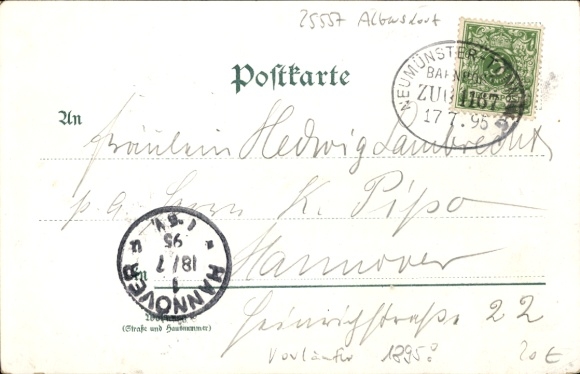 25557 Albersdorf
NEUMÜNSTER-TÖNNING
BAHNPOST
ZUG 1187
17 7. 95
Postkarte
An
Fräulein Hedwig Lambrecht
p. a. Herrn K. Pipo
Hannover
HANNOVER
1
18/7
95
in
Wohnung
(Straße und Hausnummer)
Heinrichstraße 22
Vorläufer 1895!
20 €